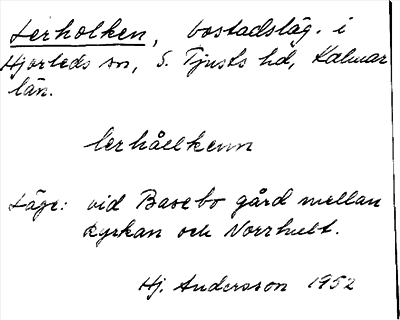 Lerholken, bostadsläg. i
Hjorteds sn, S. Tjusts hd, Kalmar
län.
lerhållkenn
Läge: vid Basebo gård mellan
kyrkan och Norrhult.
Hj. Andersson 1952